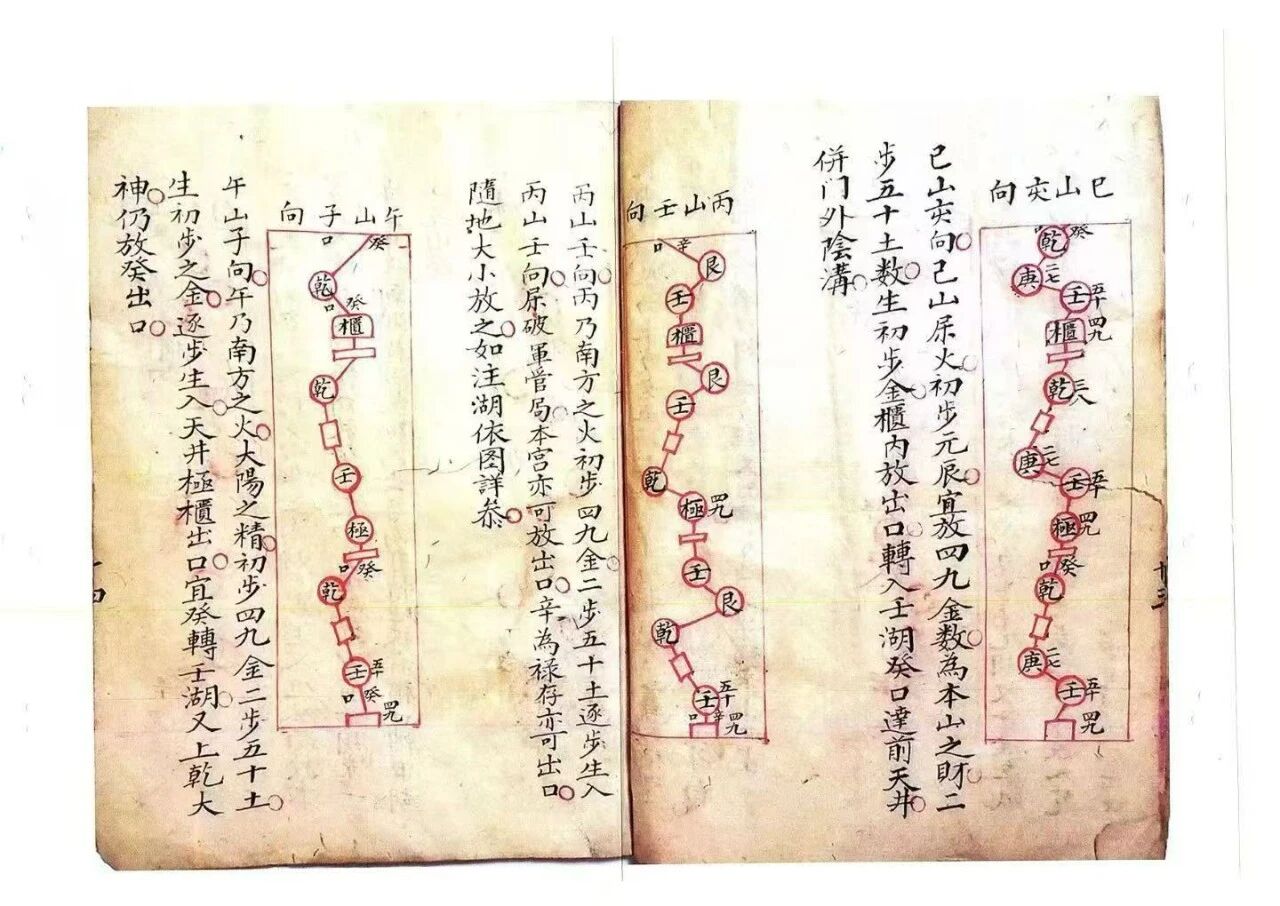 巳山亥向
口乾癸
庚二七
壬五十
櫃四九
乾三八
庚二七
壬五十
極四九
口癸
乾
庚二七
壬五十
四九
廿三
巳山亥向巳山属火初步元辰宜放四九金数為本山之財二
步五十土数生初步金櫃内放出口轉入壬湖癸口達前天井
併门外陰溝
丙山壬向
口辛
艮
壬
櫃
艮
壬
乾
極四九
壬
艮
乾
壬五十
口辛四九
丙山壬向丙乃南方之火初步四九金二步五十土逐步生入
丙山壬向属破軍管局本宫亦可放出口辛為禄存亦可出口
隨地大小放之如注湖依图詳叅
午山子向
口癸
乾
口癸
櫃
乾
壬
極
口癸
乾
壬五十
口癸四九
午山子向午乃南方之火大陽之精初步四九金二步五十土
生初步之金逐步生入天井極櫃出口宜癸轉壬湖又上乾大
神仍放癸出口